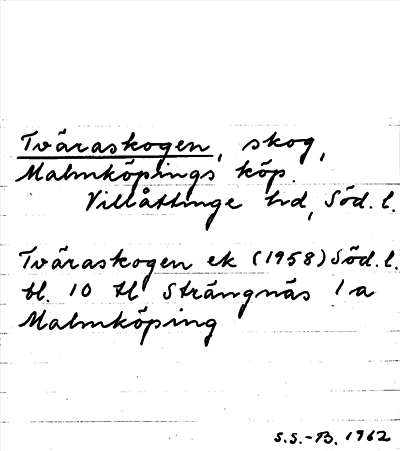 Tväraskogen, skog,
Malmköpings köp.
Villåttinge hd, Söd. l.
Tväraskogen ek (1958) Söd. l.
bl. 10 tl Strängnäs 1a
Malmköping
S.S.-B. 1962